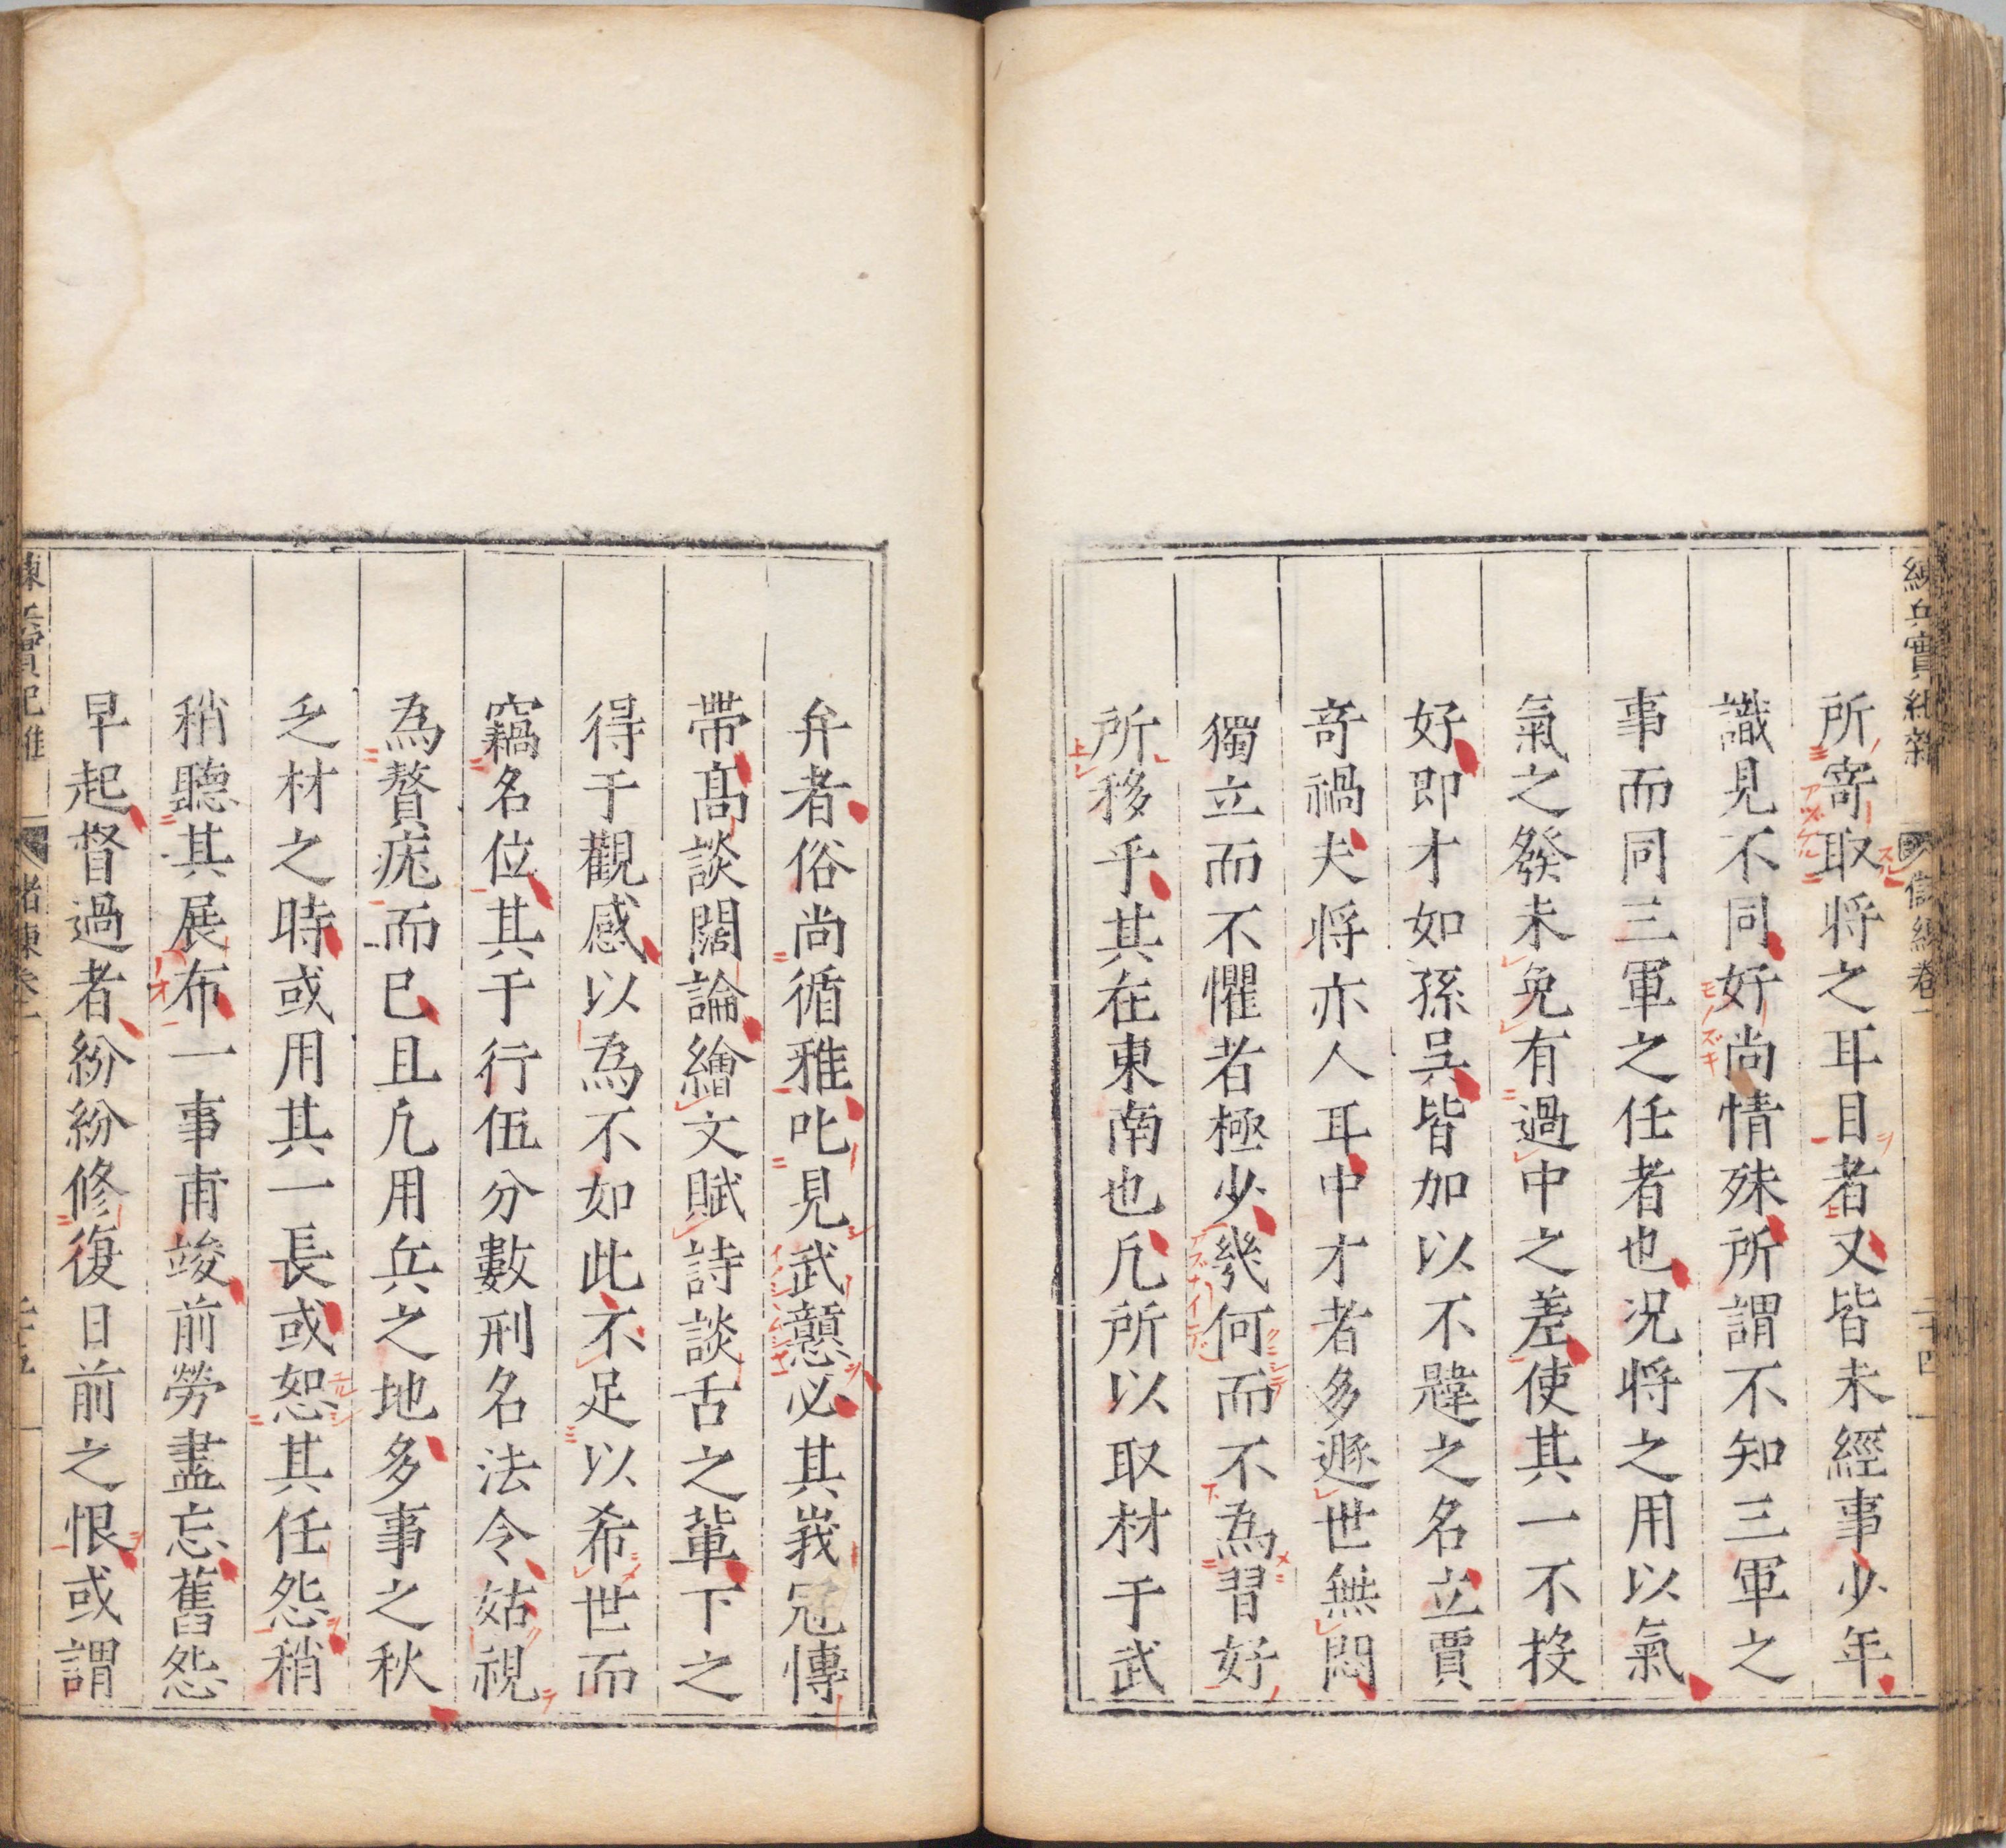 練兵實紀雜
儲練卷一
二十四
所寄取将之耳目者又皆未經事少年
識見不同好尚情殊所謂不知三軍之
事而同三軍之任者也况将之用以氣
氣之發未免有過中之差使其一不投
好即才如孫吳皆加以不韙之名立賈
奇禍夫将亦人耳中才者多遯世無悶
獨立而不懼者極少幾何而不為習好
所移乎其在東南也凡所以取材于武
弁者俗尚循雅叱見武戇必其峩冠博
帶高談闊論繪文賦詩談舌之輩下之
得于觀感以為不如此不足以希世而
竊名位其于行伍分數刑名法令姑視
為贅疣而已且凡用兵之地多事之秋
乏材之時或用其一長或恕其任怨稍
稍聽其展布一事甫竣前勞盡忘舊怨
早起督過者紛紛修復日前之恨或謂
練兵實紀雜
儲練卷一
二十五